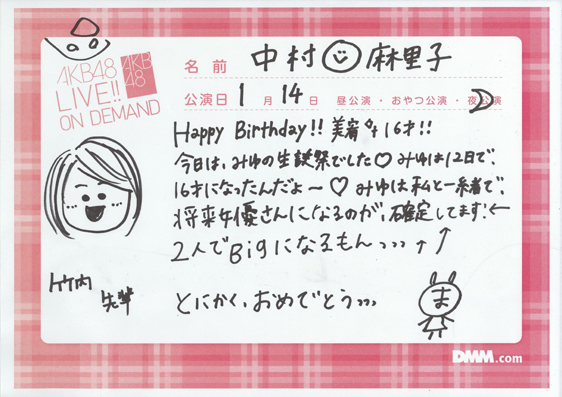 AKB48
LIVE!!
ON DEMAND
AKB
48
名前 中村 麻里子
公演日 1月14日 昼公演・おやつ公演・夜公演
Happy Birthday!! 美宥 16才!!
今日は、みゆの生誕祭でした♡ みゆは12日で、
16才になったんだよ〜♡ みゆは私と一緒で、
将来女優さんになるのが、確定してます!←
2人でBigになるもん ↑↑
とにかく、おめでとう
竹内
先輩
ま
DMM.com